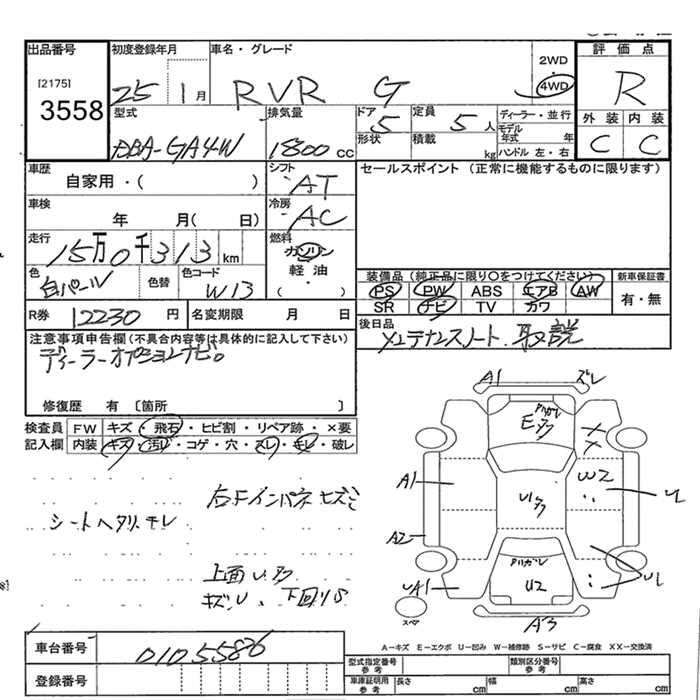 出品番号 初度登録年月 車名・グレード 評価点
[2175] 3558
25 1月 RVR G 2WD 4WD R
型式 排気量 ドア 定員 ディーラー・並行 外装 内装
DBA-GA4W 1800cc 5 5人 モデル年式 年 C C
形状 積載 kg ハンドル 左・右
車歴 シフト セールスポイント (正常に機能するものに限ります)
自家用・( ) AT
車検 冷房
年 月( 日) AC
走行 燃料
15万0千313km ガソリン
軽油
・( )
色 色替 色コード 装備品 (純正品に限り○をつけてください) 新車保証書
白パール W13 PS PW ABS エアB AW 有・無
SR ナビ TV カワ
R券 12230円 名変期限 月 日 後日品
メンテナンスノート、取説
注意事項申告欄(不具合内容等は具体的に記入して下さい)
ディーラーオプションナビ。
修復歴 有 [箇所 ]
検査員 FW キズ・飛石・ヒビ割・リペア跡・×要
記入欄 内装 キズ・汚れ・コゲ・穴・スレ・キレ・破レ
右Fインパネ ヒズミ
シートヘタリ、キレ
上面U,ア
キズU、下回りS
A1 ズレ
E,ア
A1 W2 U
U1,ア
A2
U2 U1
UA1
スペア A3
A−キズ E−エクボ U−凹み W−補修跡 S−サビ C−腐食 XX−交換済
車台番号 0105586
登録番号
型式指定番号 参考 類別区分番号 参考
車庫証明用 参考 長さ cm 幅 cm 高さ cm